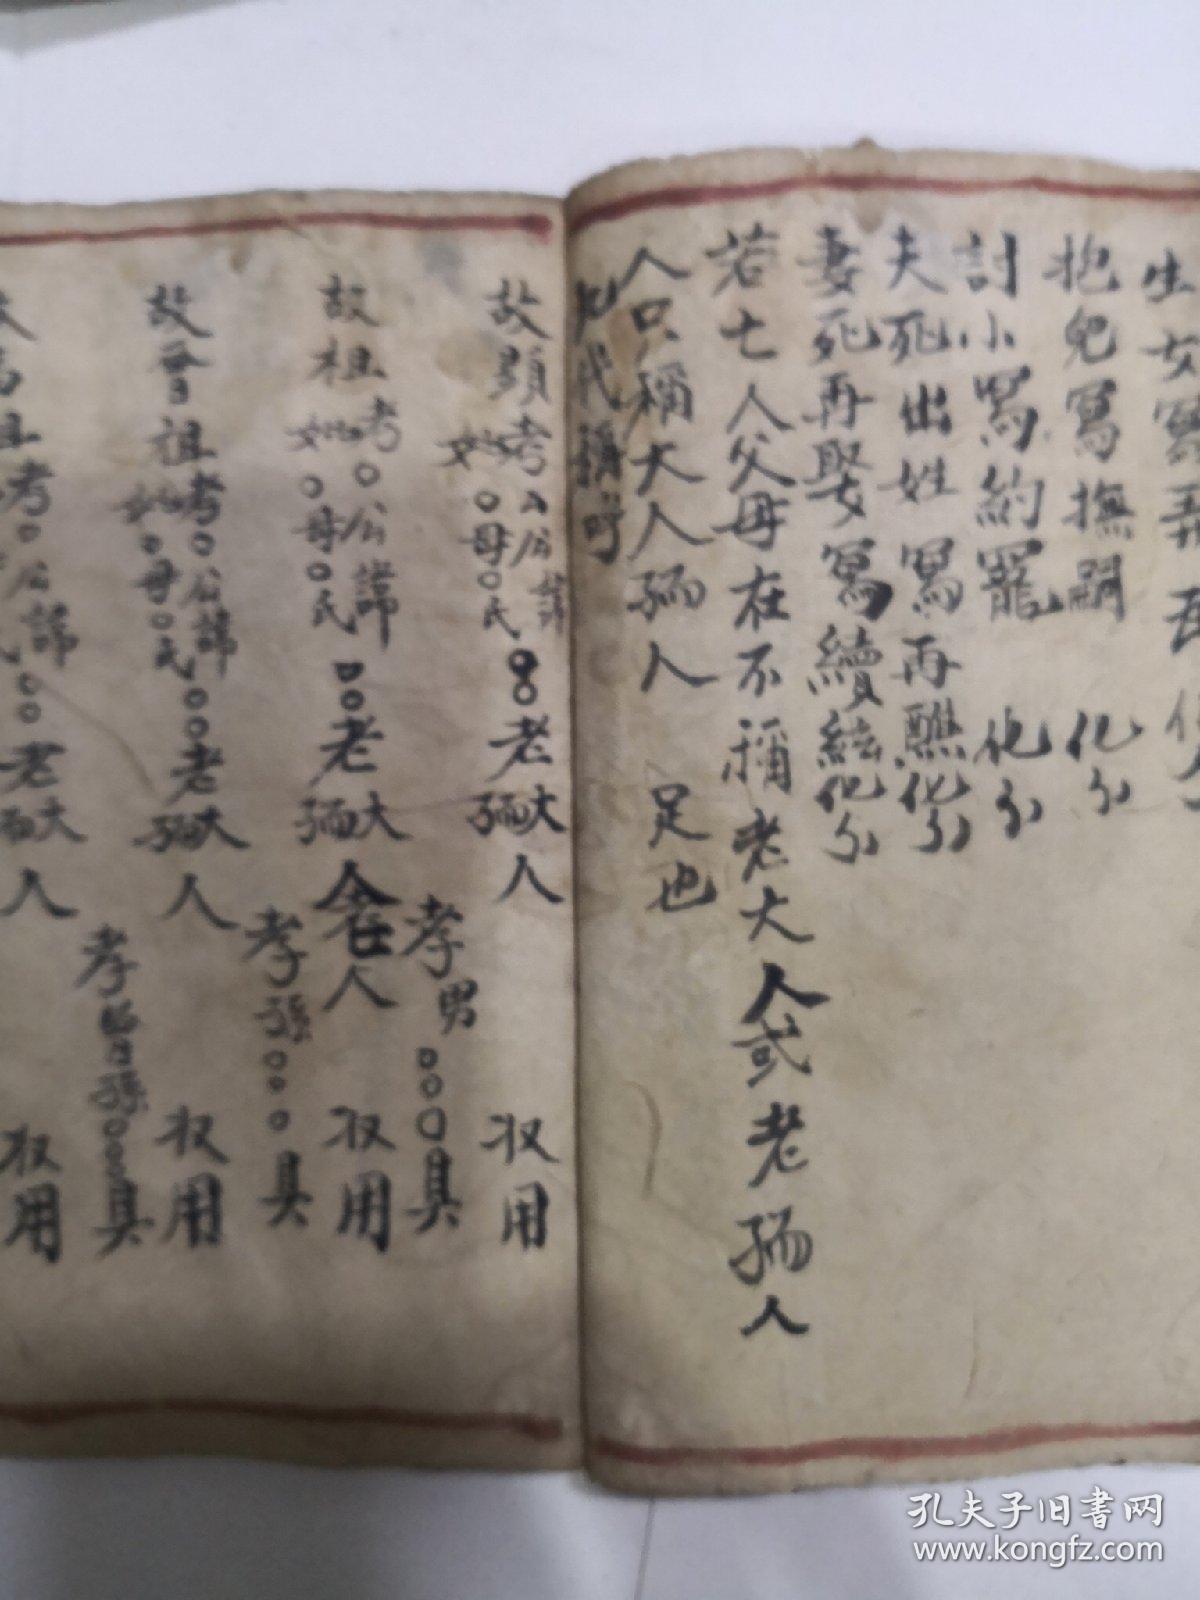 生女寫弄瓦
抱兒寫撫嗣 化分
討小寫約罷 化分
夫死出姓寫再醮化分
妻死再娶寫續絃化分
若亡人父母在不稱老大人或老孺人
人只稱大人孺人 足也
代稱呼
故顯考妣 公諱 母○氏 ○○老大孺人 收用
孝男○○○具
故祖考妣 ○公諱 ○母○氏 ○○老大孺人 收用
孝孫○○○具
故曾祖考妣 ○公諱 ○母○氏 ○○老大孺人 收用
孝曾孫○○○具
故高祖考○公諱 氏 ○○老大孺人 收用
孔夫子旧书网
www.kongfz.com